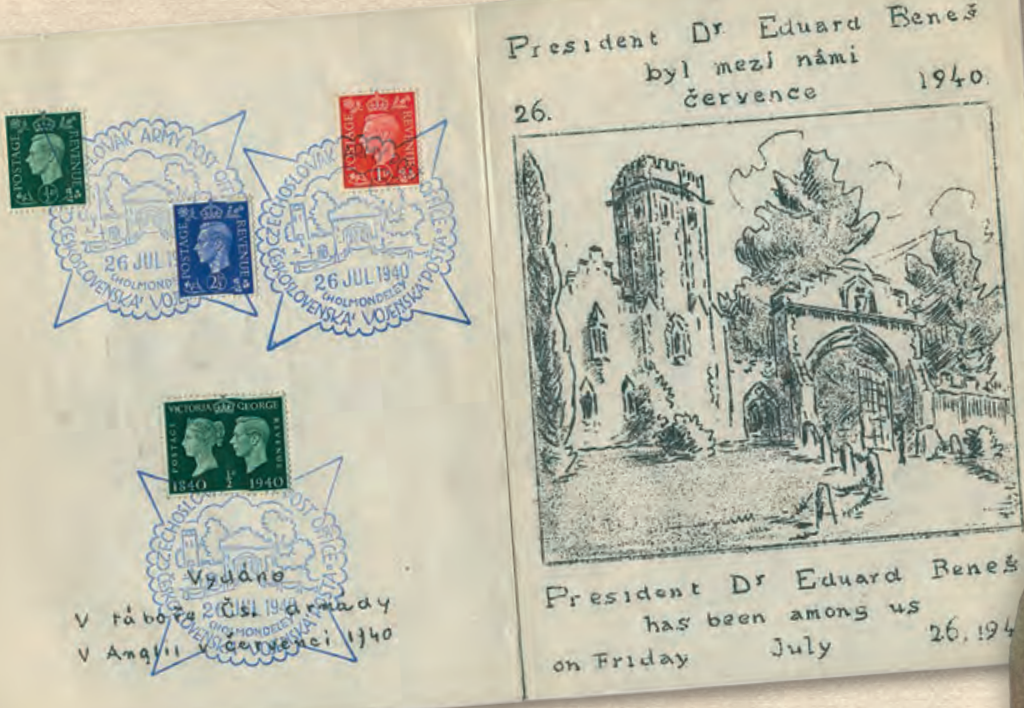 POSTAGE REVENUE
SLOVAK ARMY POST
26 JUL
CHOLMOND
VOJE
POSTAGE REVENUE
2½D
POSTAGE REVENUE
1D
CZECHOSLOVAK
OFFICE
26 JUL 1940
CHOLMONDELEY
ČESKOSLOVENSKÁ VOJENSKÁ POŠTA
VICTORIA GEORGE
POSTAGE REVENUE
1840 ½ 1940
POST OFFICE
26 JUL 1940
CHOLMONDELEY
Vydáno
V táboře Čsl. armády
V Anglii v červenci 1940
President Dr Eduard Beneš
byl mezi námi
26. července 1940.
President Dr Eduard Beneš
has been among us
on Friday July 26, 194